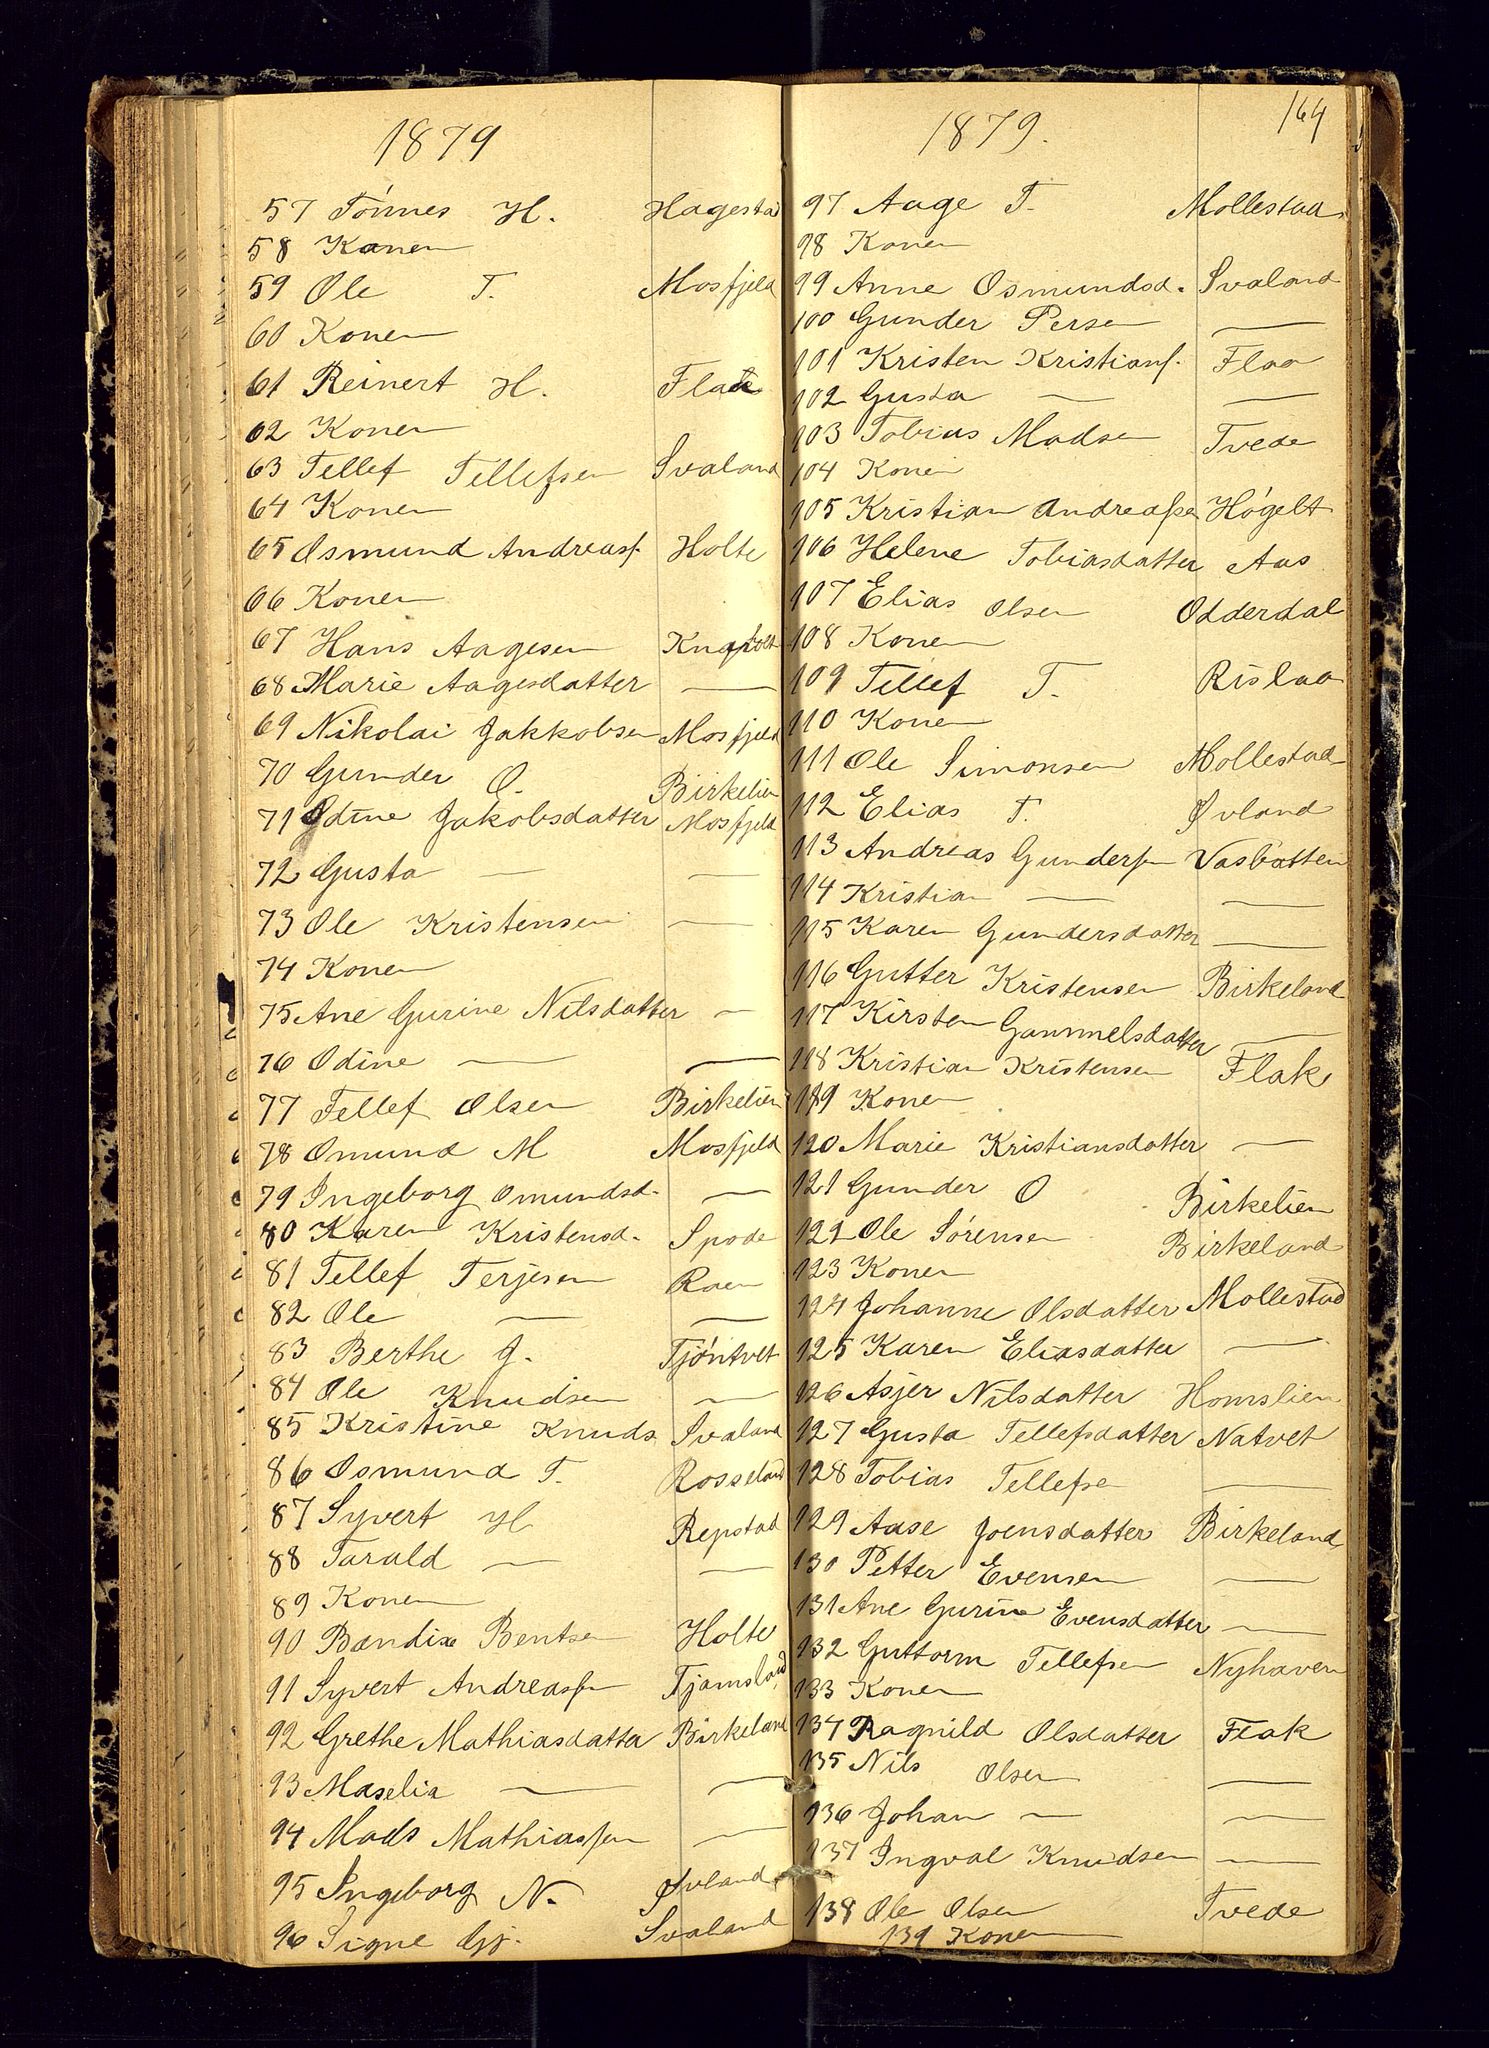 1879
57 Tónnes H. Hagestad
58 Konen
59 Ole T. Mosfjeld
60 Konen
61 Reinert H. Flak
62 Konen
63 Tellef Tellefsen Svaland
64 Konen
65 Osmund Andreasf. Holte
66 Konen
67 Hans Aagesen
68 Marie Aagesdatter —
69 Nikolai Jakkobsen Mosfjeld
70 Gunder O. Birkelien
71 Odine Jakobsdatter Mosfjeld
72 Gusta — —
73 Ole Kristensen —
74 Konen
75 Ane Gurine Nilsdatter —
76 Odine — —
77 Tellef Olsen Birkelien
78 Omund M Mosfjeld
79 Ingeborg Omundsd. —
80 Karen Kristensd. Spode
81 Tellef Terjesen Roen
82 Ole — —
83 Berthe J. Tjóntvet
84 Ole Knudsen —
85 Kristine Knuds Svaland
86 Osmund T. Rosseland
87 Syvert H Repstad
88 Tarald — —
89 Konen
90 Bendix Bentsen Holte
91 Syvert Andreassen Tjomsland
92 Grethe Mathiasdatter Birkeland
93 Maselia — —
94 Mads Mathiassen —
95 Ingeborg N. Øvland
96 Signe Gj. Svaland
164
1879.
97 Aage T. Mollestad
98 Konen
99 Anne Osmundsd. Svaland
100 Gunder Persen —
101 Kristen Kristiansf. Flaa
102 Gusta — —
103 Tobias Madsen Tvede
104 Konen
105 Kristian Andreassen Hógelt
106 Helene Tobiasdatter Aas
107 Elias Olsen Odderdal
108 Konen
109 Tellef T. Rislaa
110 Konen
111 Ole Simonsen Mollestad
112 Elias T. Øvland
113 Andreas Gundersen Vasbotten
114 Kristian — —
115 Karen Gundersdatter —
116 Gutter Kristensen Birkeland
117 Kirsten Gammelsdatter —
118 Kristian Kristensen Flak
119 Konen
120 Marie Kristiansdatter —
121 Gunder O Birkelien
122 Ole Sørensen Birkeland
123 Konen
124 Johanne Olsdatter Mollestad
125 Karen Eliasdatter —
126 Asjer Nilsdatter Homslien
127 Gusta Tellefsdatter Natvet
128 Tobias Tellefsen —
129 Aase Joensdatter Birkeland
130 Petter Evensen —
131 Ane Gurine Evensdatter —
132 Guttorm Tellefsen Nyhaven
133 Konen
134 Ragnild Olsdatter Flak
135 Nils Olsen —
136 Johan — —
137 Ingval Knudsen —
138 Ole Olsen Tvede
139 Konen